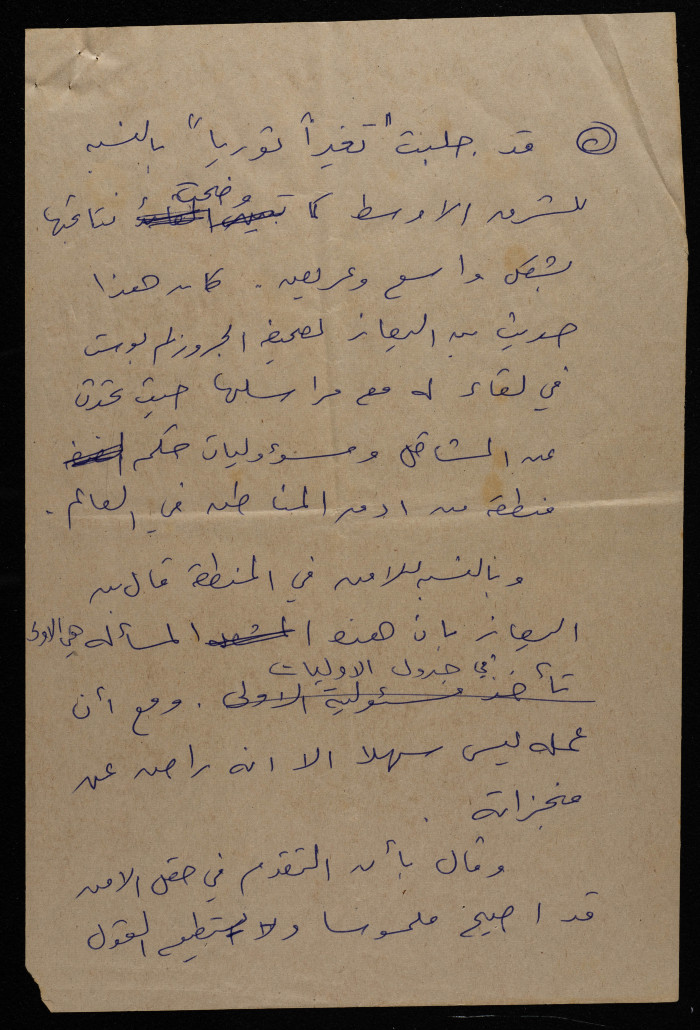 قد جلبت "تغيراً ثوريا" بالنسبه
للشرق الاوسط كما وضحت نتائجها
بشكل واسع وعريض. كان هذا
حديث بن اليعازر لصحيفة الجروزلم بوست
في لقاء له مع مراسلها حيث تحدث
عن المشاكل ومسؤوليات حكم
منطقة من ادق المناطق في العالم.
وبالنسبه للامن في المنطقة قال بن
اليعازر بان هذه المسأله هي الاولى
في جدول الاوليات
تأخذ مسئولية الاولى. ومع أن
عمله ليس سهلا الا انه راض عن
منجزاته.
وقال بأن التقدم في حقل الامن
قد اصبح ملموسا ولا يستطيع القول